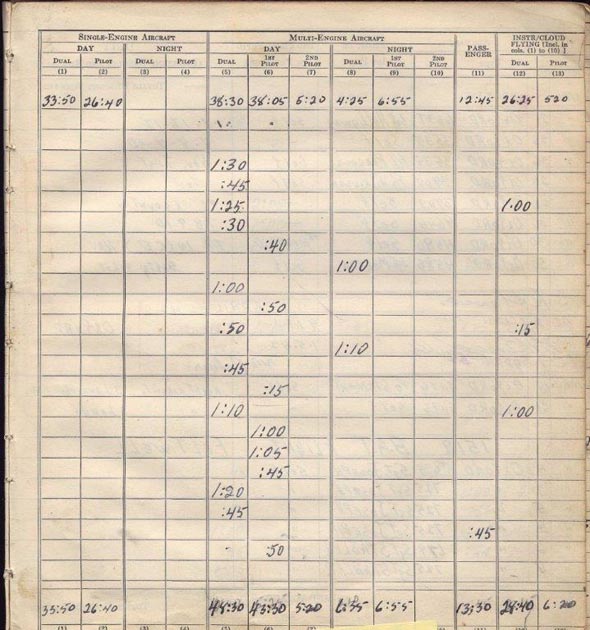 SINGLE-ENGINE AIRCRAFT MULTI-ENGINE AIRCRAFT PASS-ENGER INSTR/CLOUD FLYING [Incl. in cols. (1) to (10) ]
DAY NIGHT DAY NIGHT
DUAL PILOT DUAL PILOT DUAL 1ST PILOT 2ND PILOT DUAL 1ST PILOT 2ND PILOT DUAL PILOT
(1) (2) (3) (4) (5) (6) (7) (8) (9) (10) (11) (12) (13)
33:50 26:40 38:30 38:05 5:20 4:25 6:55 12:45 26:25 520
1:30
:45
1:25 1:00
:30
:40
1:00
1:00
:50
:50 :15
1:10
:45
:15
1:10 1:00
1:00
1:05
:45
1:20
:45
:45
:50
26:40 43:30 5:20 6:35 6:55 13:30 6:20
(1) (2) (3) (4) (5) (6) (7)